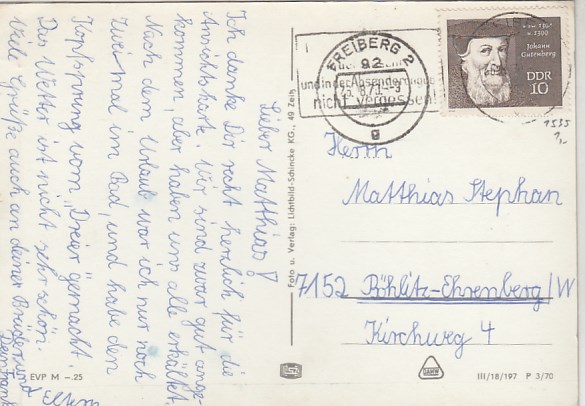 Lieber Matthias!
Ich danke Dir recht herzlich für die
Ansichtskarte. Wir sind zwar gut ange-
kommen aber haben uns alle erkältet.
Nach dem Urlaub war ich nur noch
zweimal im Bad, und habe den
Kopfsprung vom "Dreier" gemacht.
Das Wetter ist nicht sehr schön.
Viele Grüße auch an deine Brüder und
Eltern
Dein Frank
EVP M –.25
Foto u. Verlag: Lichtbild-Schincke KG., 49 Zeitz
FREIBERG 2
92
und in der Absenderangabe
nicht vergessen!
g
Johann
Gutenberg
DDR
10
1535
Herrn
Matthias Stephan
7152 Böhlitz-Ehrenberg/W
Kirchweg 4
III/18/197 P 3/70